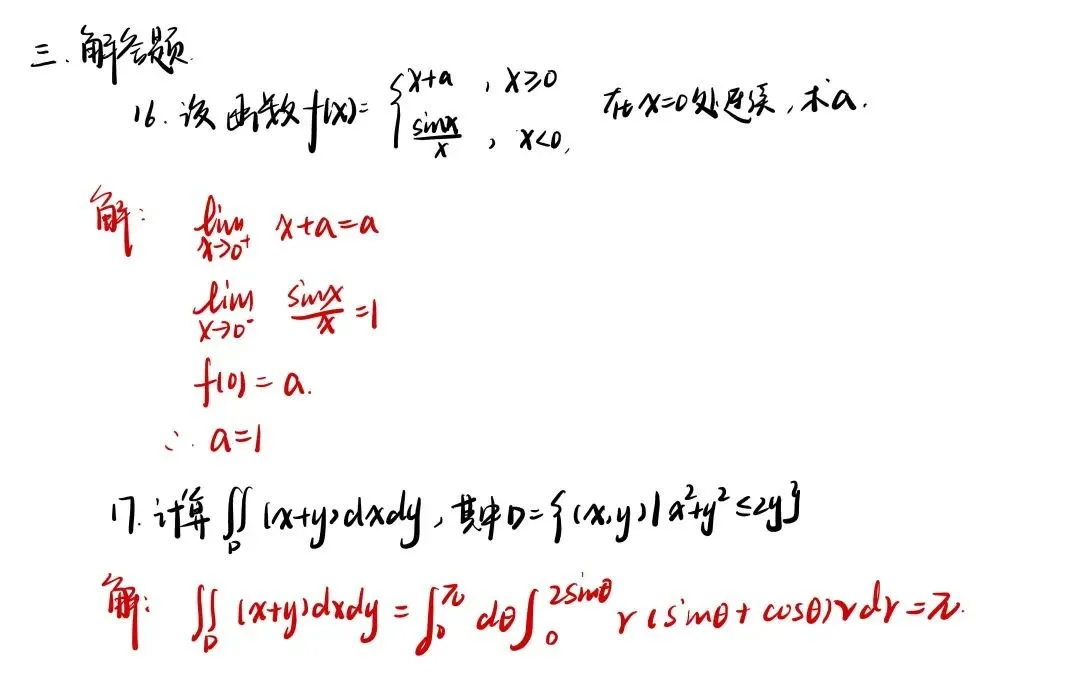 三.解答题
16.设函数f(x)={x+a , x≥0
sinx/x , x<0, 在x=0处连续,求a.
解: lim x→0⁺ x+a=a
lim x→0⁻ sinx/x=1
f(0)=a.
∴ a=1
17.计算∬_D (x+y)dxdy,其中D={(x,y)|x²+y²≤2y}
解: ∬_D (x+y)dxdy=∫₀^π dθ∫₀^{2sinθ} r(sinθ+cosθ)rdr=π.